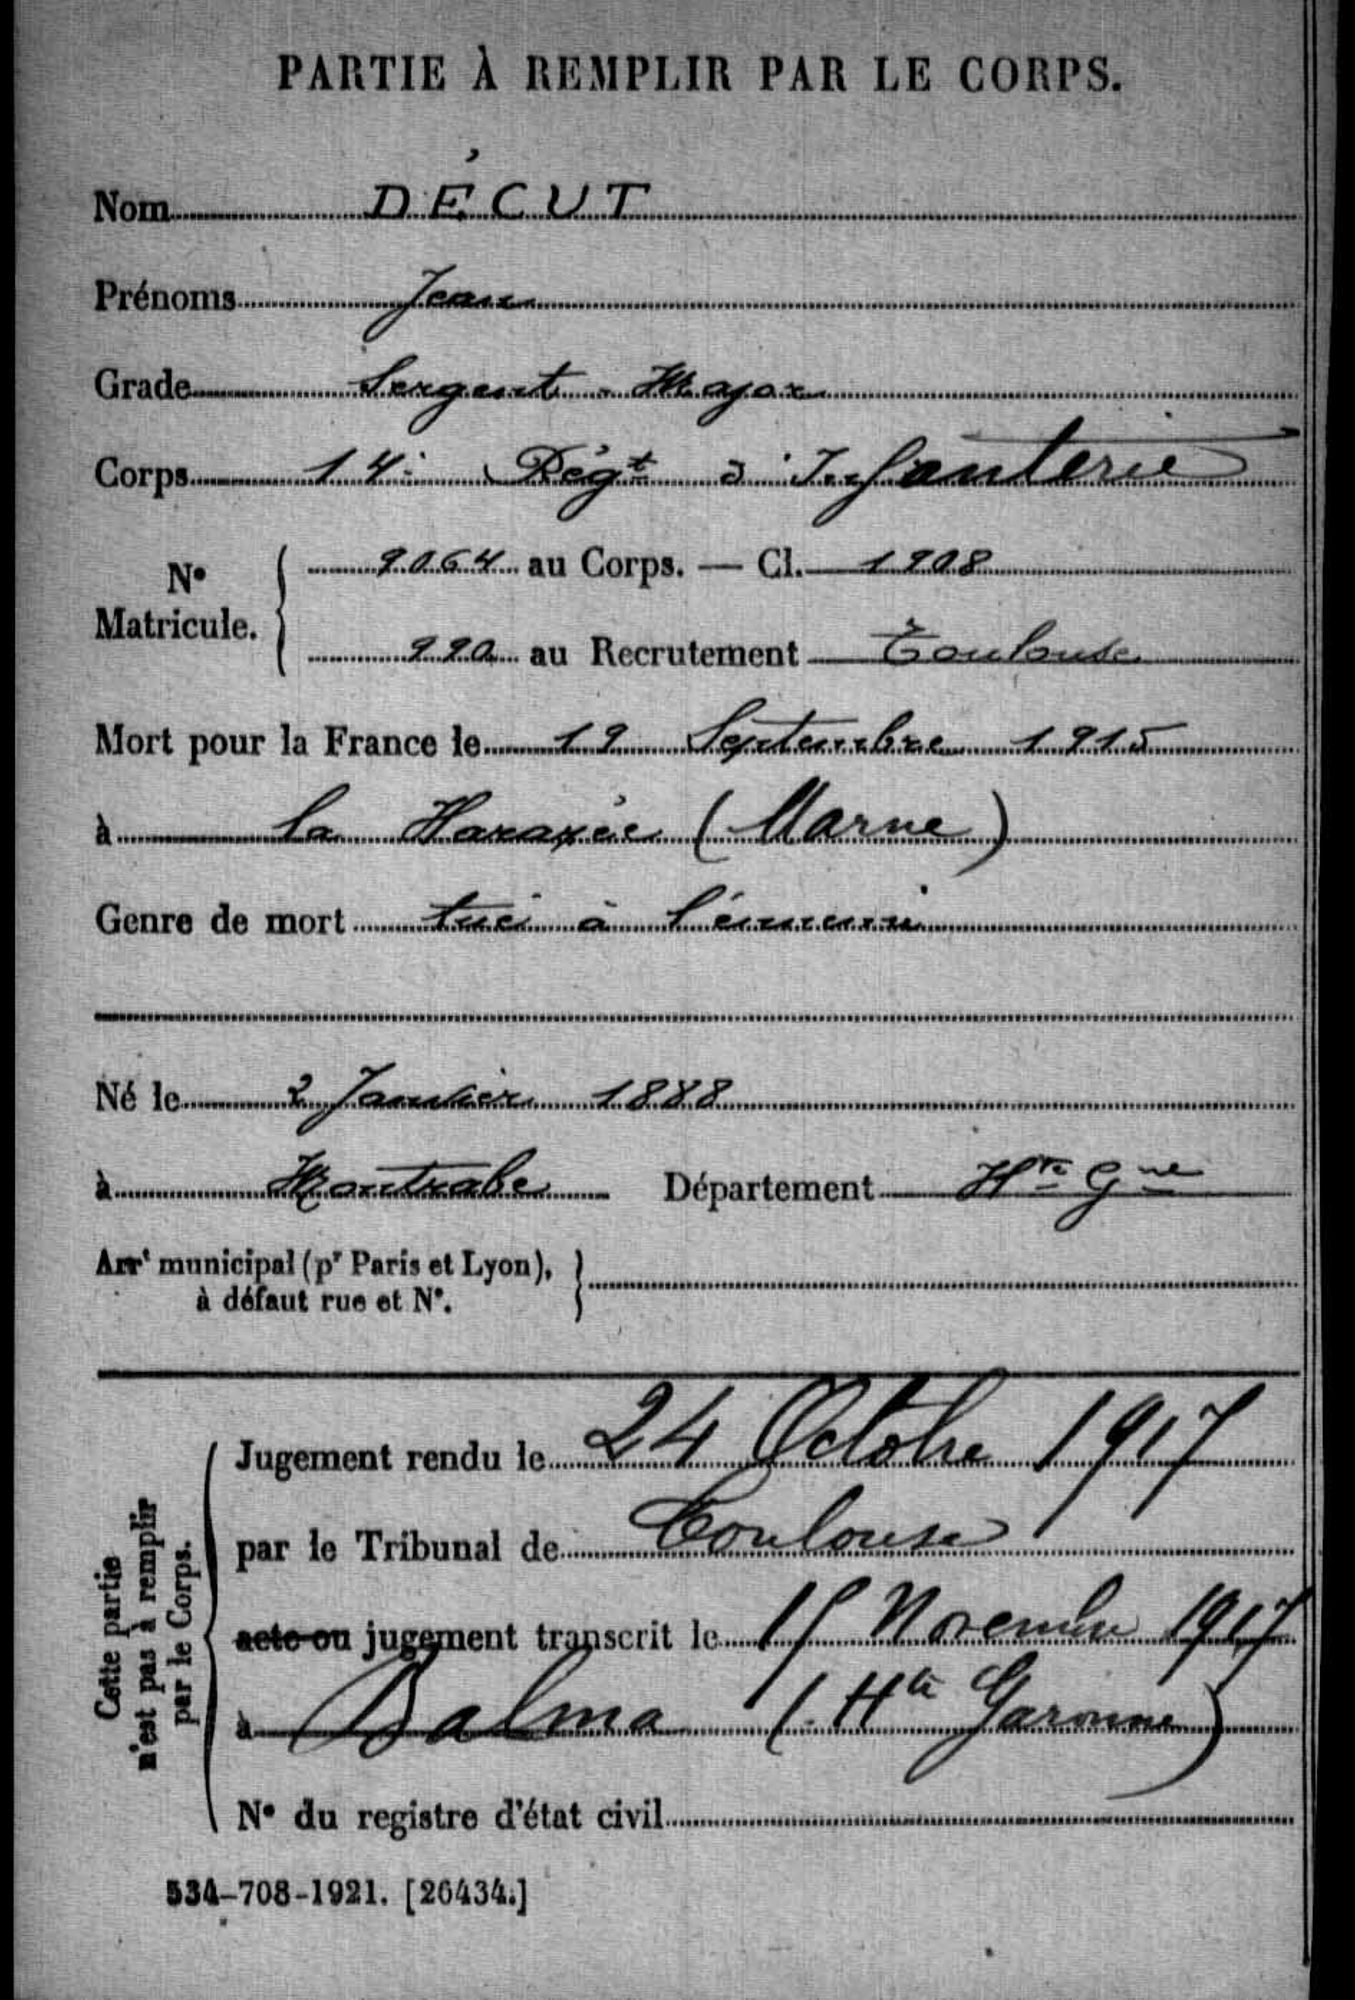 PARTIE À REMPLIR PAR LE CORPS.
Nom DÉCUT
Prénoms Jean
Grade Sergent-Major
Corps 14e Régt d'Infanterie
No Matricule. { 9064 au Corps. — Cl. 1908
990 au Recrutement Toulouse
Mort pour la France le 19 Septembre 1915
à la Harazée (Marne)
Genre de mort tué à l'ennemi
Né le 2 Janvier 1888
à Montrabe Département Hte Gne
Arrt municipal (pr Paris et Lyon), à défaut rue et No.
Cette partie n'est pas à remplir par le Corps.
Jugement rendu le 24 Octobre 1917
par le Tribunal de Toulouse
acte ou jugement transcrit le 15 Novembre 1917
à Balma (Hte Garonne)
No du registre d'état civil
534-708-1921. [26434.]